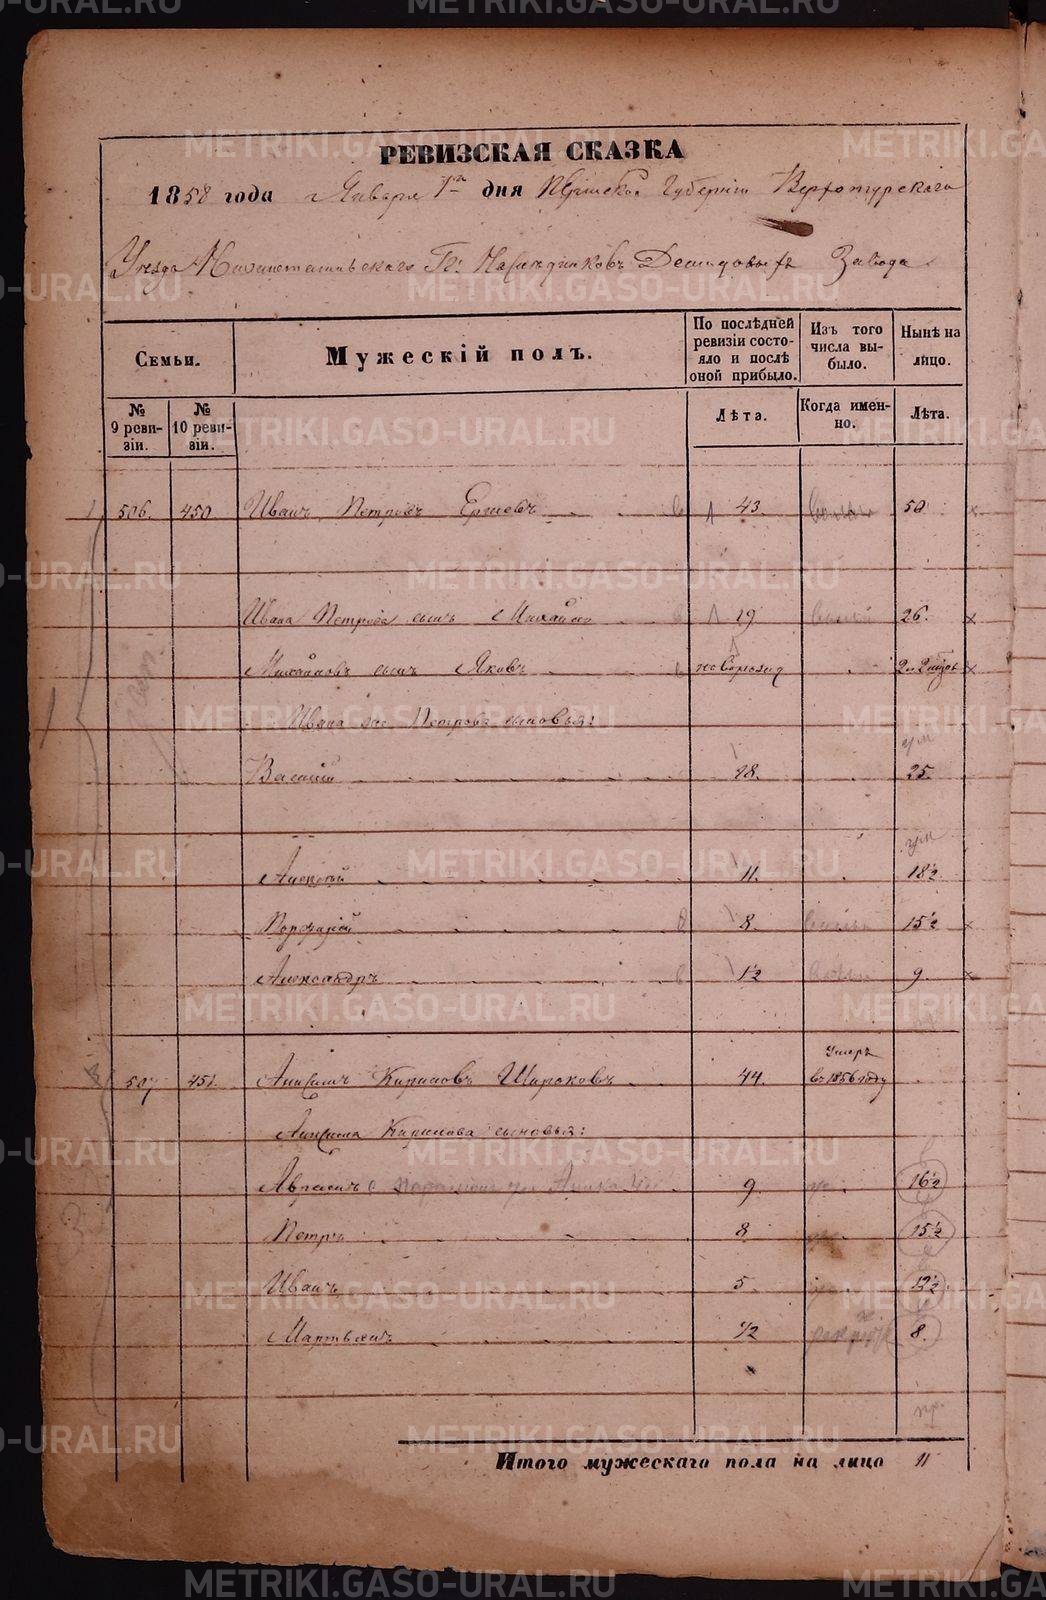 РЕВИЗСКАЯ СКАЗКА
1858 года Января 1го дня Пермской Губерніи Верхотурскаго
Уезда Нижнетагильскаго Гг. Наследниковъ Демидовыхъ Завода
Семьи.
Мужескій полъ.
По послѣдней ревизіи состояло и послѣ оной прибыло.
Изъ того числа выбыло.
Нынѣ на лицо.
№ 9 ревизіи.
№ 10 ревизіи.
Лѣта.
Когда именно.
Лѣта.
506. 450 Иванъ Петровъ Ершевъ 43 50
Ивана Петрова сынъ Михайло 19 26.
Михайловъ сынъ Яковъ
Ивана же Петрова сыновья:
Василій 18. 25.
Алексѣй 11. 18½
Порфирій 8. 15½
Александръ 1½ 9.
507 451. Анисимъ Кириловъ Широковъ 44. Умеръ въ 1856 году
Анисима Кирилова сыновья:
Аврамъ 9 16½
Петръ 8 15½
Иванъ 5 12½
Мартьянъ ½ 8.
Итого мужескаго пола на лицо 11
METRIKI.GASO-URAL.RU